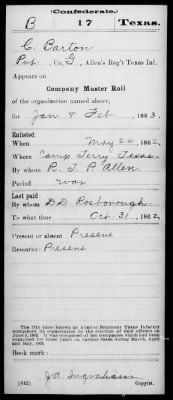 (Confederate.)
B 17 Texas.
C. Barton
Pvt., Co. G, Allen's Reg't Texas Inf.
Appears on
Company Muster Roll
of the organization named above,
for Jan & Feb, 1863.
Enlisted:
When May 24, 1862
Where Camp Terry Texas
By whom R. T. P. Allen
Period war
Last paid:
By whom D.D. Rosborough
To what time Oct. 31, 1862.
Present or absent Present
Remarks: Present
Book mark:
J A Ingraham
(642) Copyist.